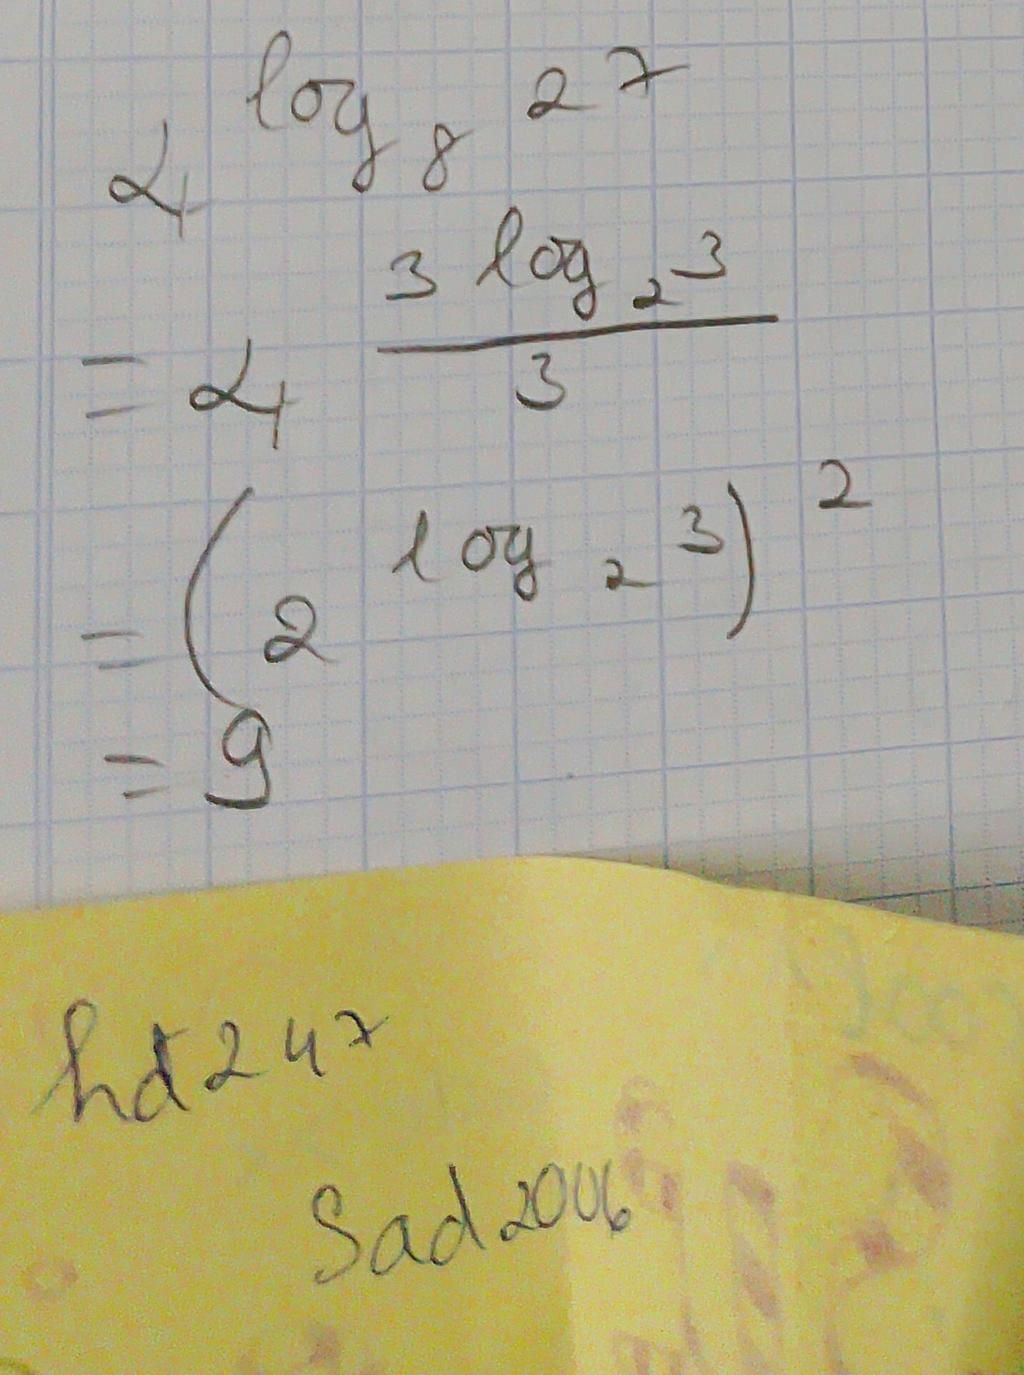 4^{log_8 27}
= 4^{\frac{3 log_2 3}{3}}
= (2^{log_2 3})^2
= 9
hd247
Sad2006